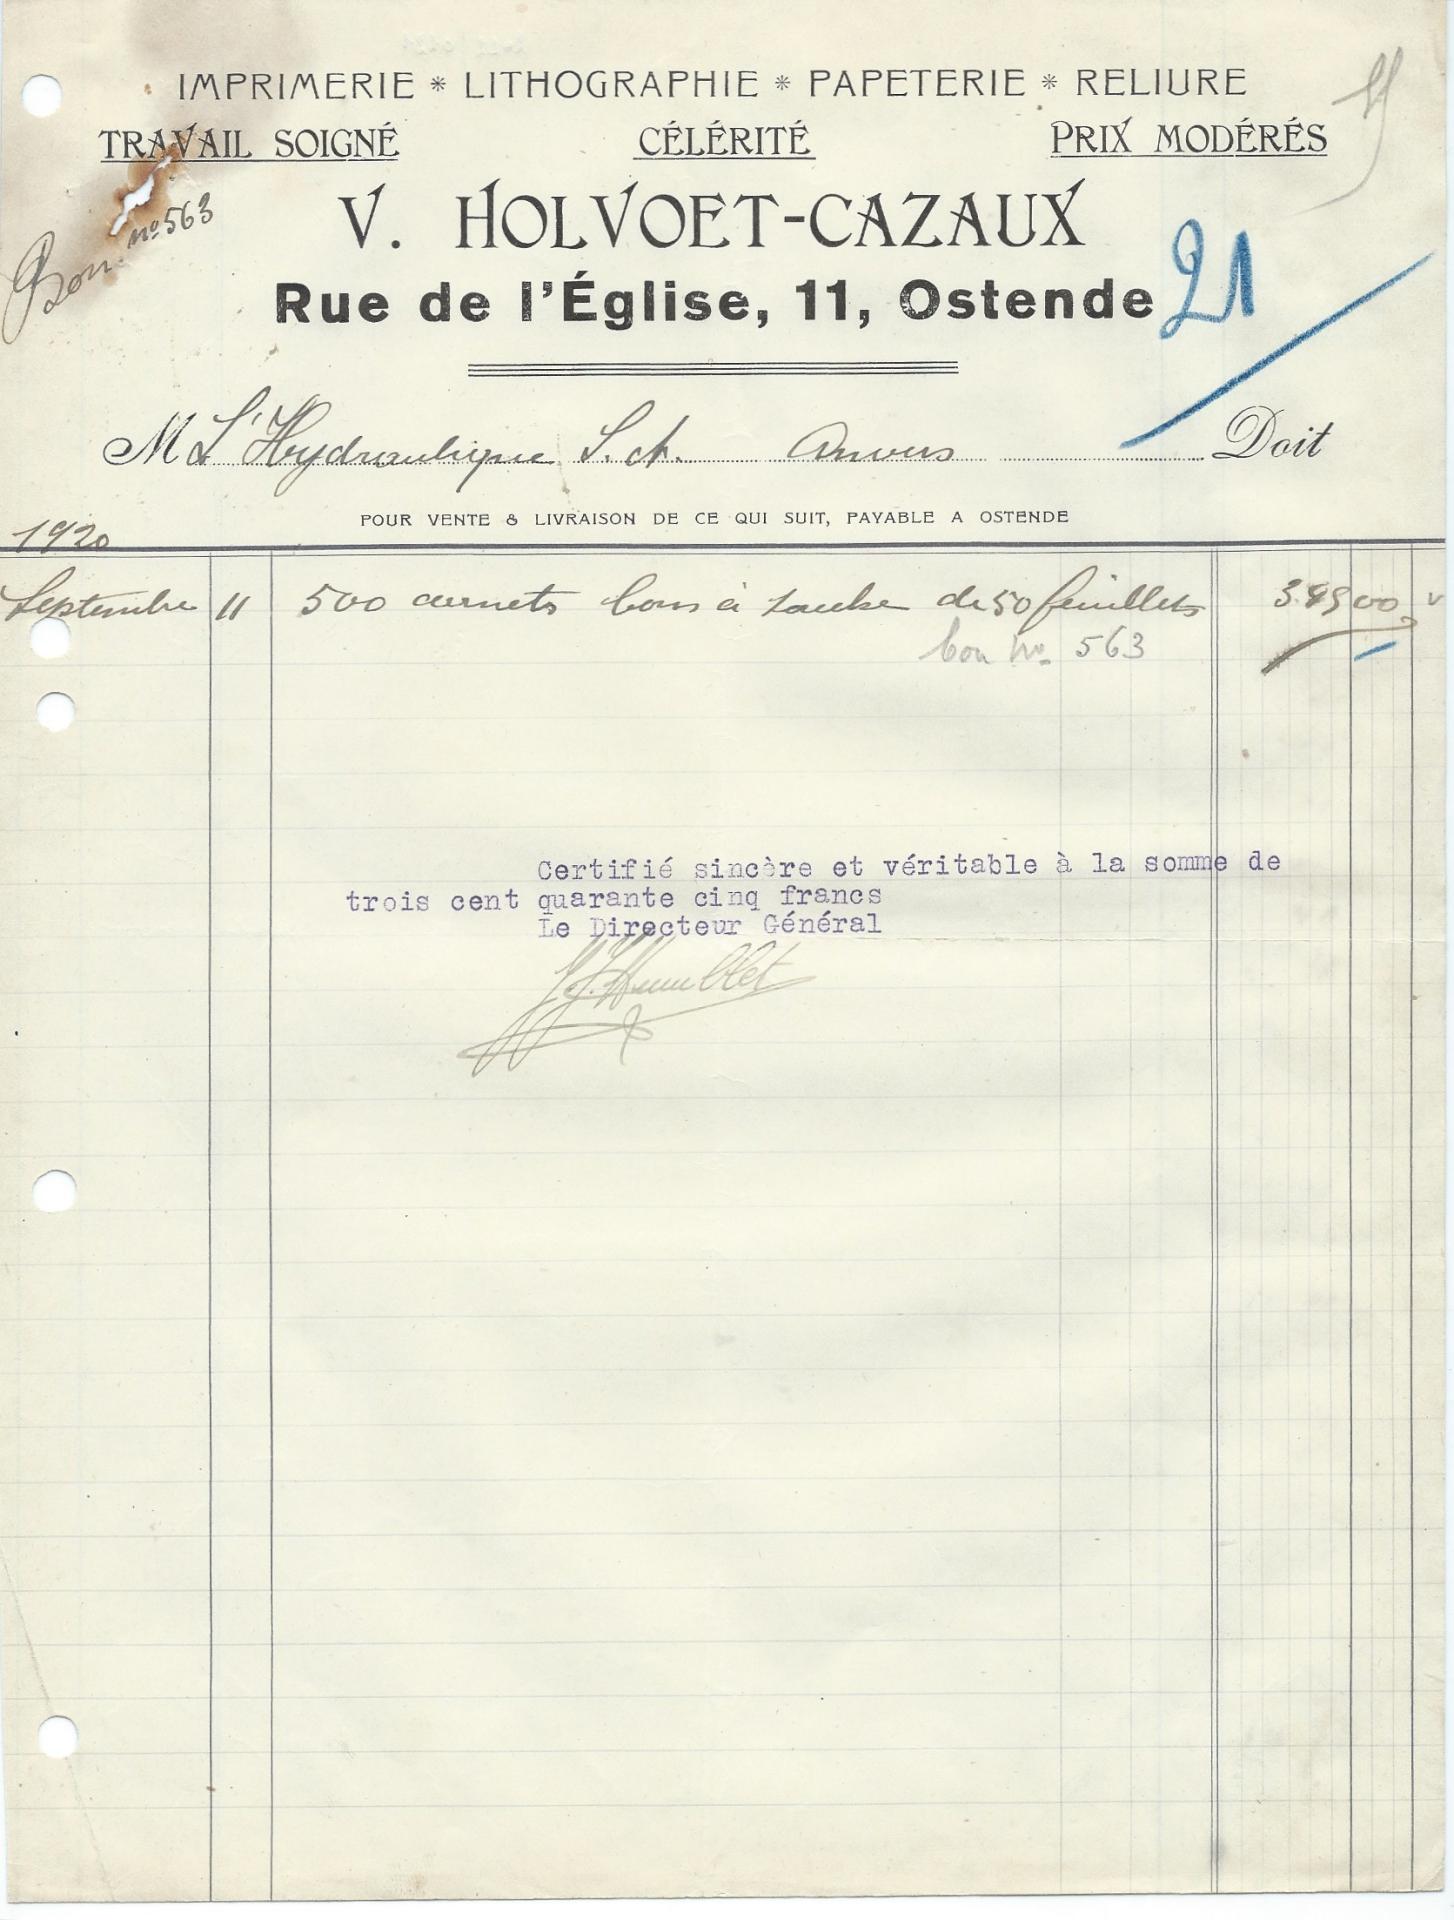 IMPRIMERIE * LITHOGRAPHIE * PAPETERIE * RELIURE
TRAVAIL SOIGNÉ CÉLÉRITÉ PRIX MODÉRÉS
Bon no 563
V. HOLVOET-CAZAUX
21
Rue de l'Église, 11, Ostende
M L'Hydraulique S.A. Anvers Doit
POUR VENTE & LIVRAISON DE CE QUI SUIT, PAYABLE A OSTENDE
1920
Septembre 11 500 carnets bons à souche de 50 feuillets 345 00
bon no 563
Certifié sincère et véritable à la somme de
trois cent quarante cinq francs
Le Directeur Général